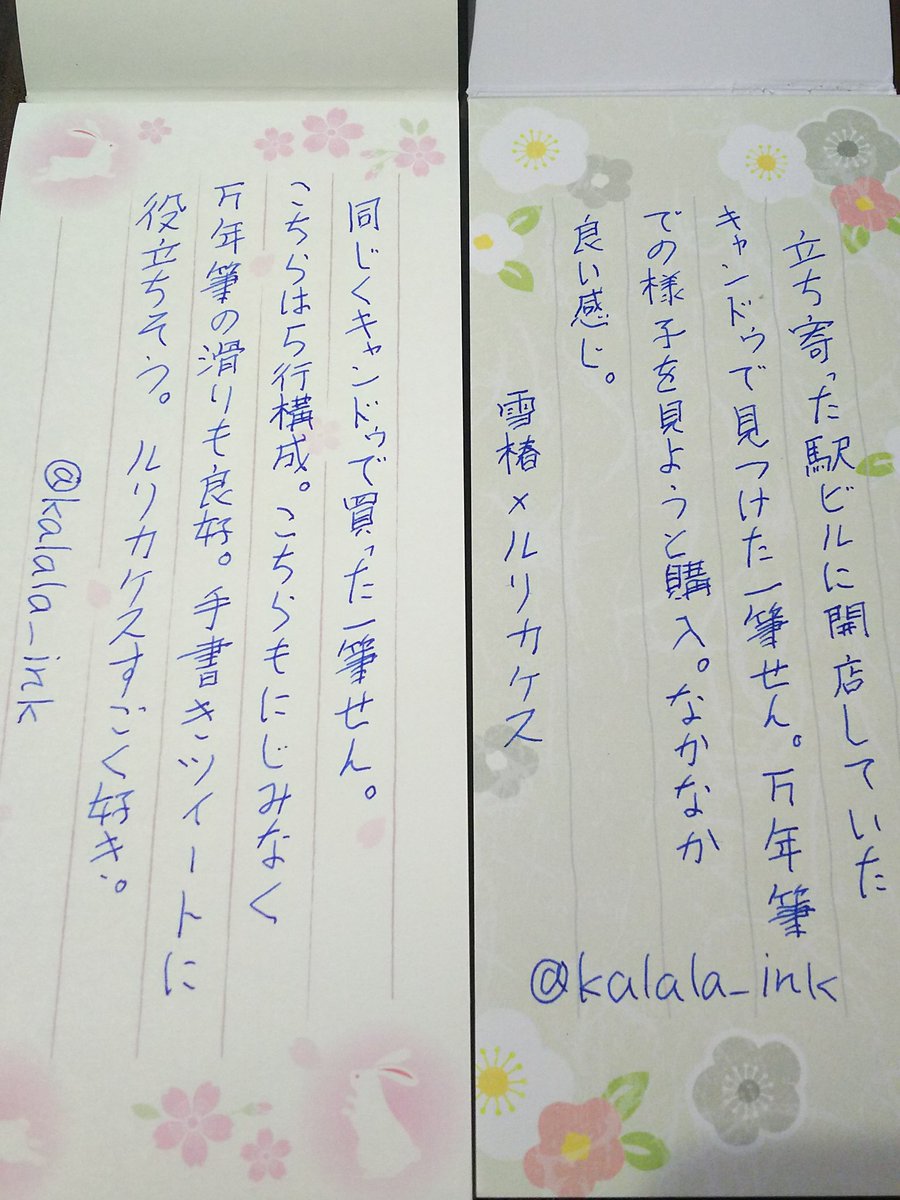 立ち寄った駅ビルに開店していた
キャンドゥで見つけた一筆せん。万年筆
での様子を見ようと購入。なかなか
良い感じ。
雪椿×ルリカケス
@kalala_ink
同じくキャンドゥで買った一筆せん。
こちらは5行構成。こちらもにじみなく
万年筆の滑りも良好。手書きツイートに
役立ちそう。ルリカケスすごく好き。
@kalala_ink